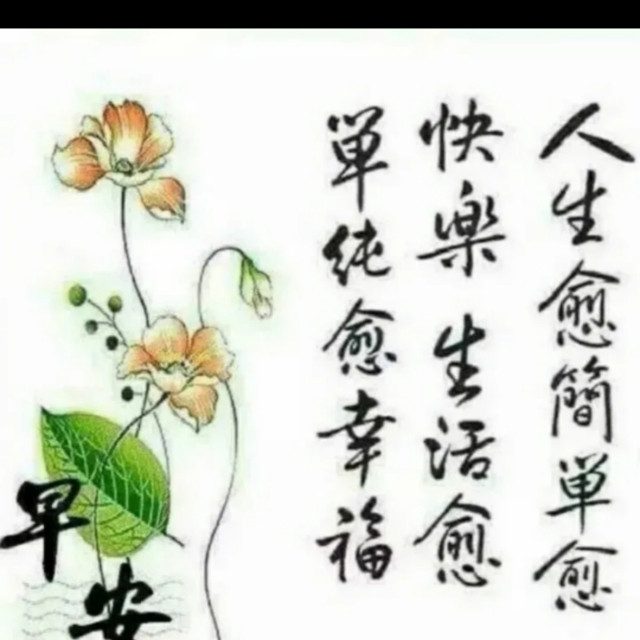 人生愈簡单愈
快楽 生活愈
单纯愈幸福
早安